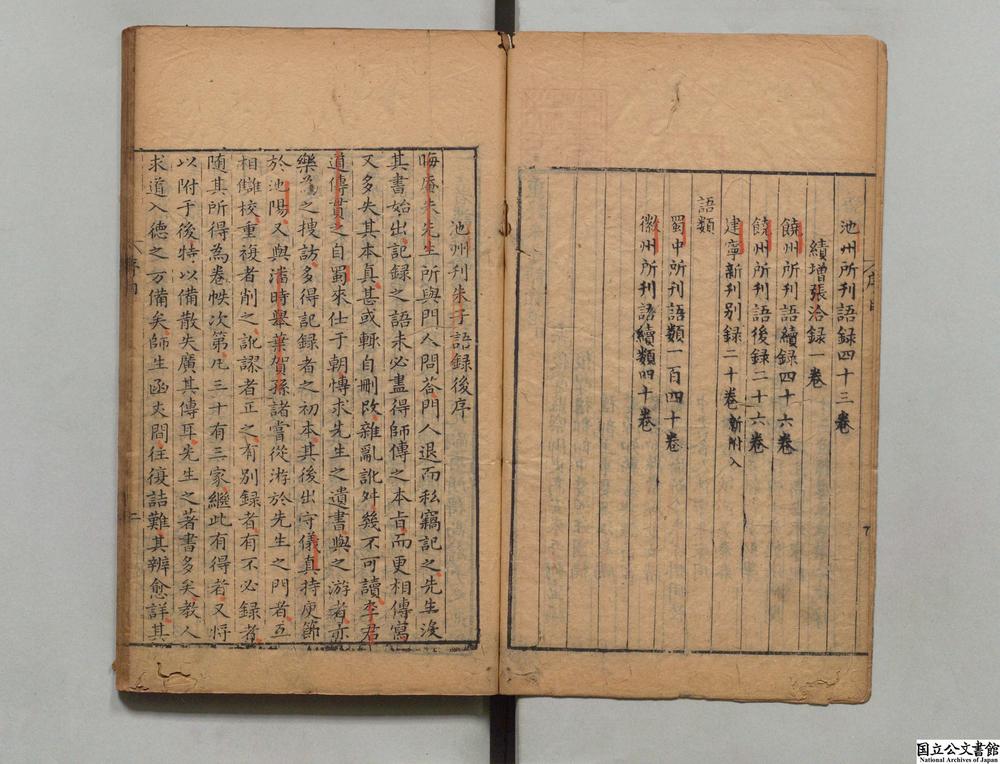 池州所刊語録四十三卷
續增張洽録一卷
饒州所刊語續録四十六卷
饒州所刊語後録二十六卷
建寧新刊別録二十卷新附入
語類
蜀中所刊語類一百四十卷
徽州所刊語續類四十卷
池州刊朱子語録後序
晦庵朱先生所與門人問荅門人退而私竊記之先生沒
其書始出記録之語未必盡得師傳之本旨而更相傳寫
又多失其本真甚或輒自刪改雜亂訛舛幾不可讀李君
道傳貫之自蜀來仕于朝博求先生之遺書與之游者亦
樂為之搜訪多得記録者之初本其後出守儀真持庾節
於池陽又與潘時舉葉賀孫諸嘗從游於先生之門者互
相讎校重複者削之訛謬者正之有別録者有不必録者
隨其所得為卷帙次第凡三十有三家繼此有得者又將
以附于後特以備散失廣其傳耳先生之著書多矣教人
求道入德之方備矣師生函丈間往復詰難其辨愈詳其
序目
二
国立公文書館
National Archives of Japan